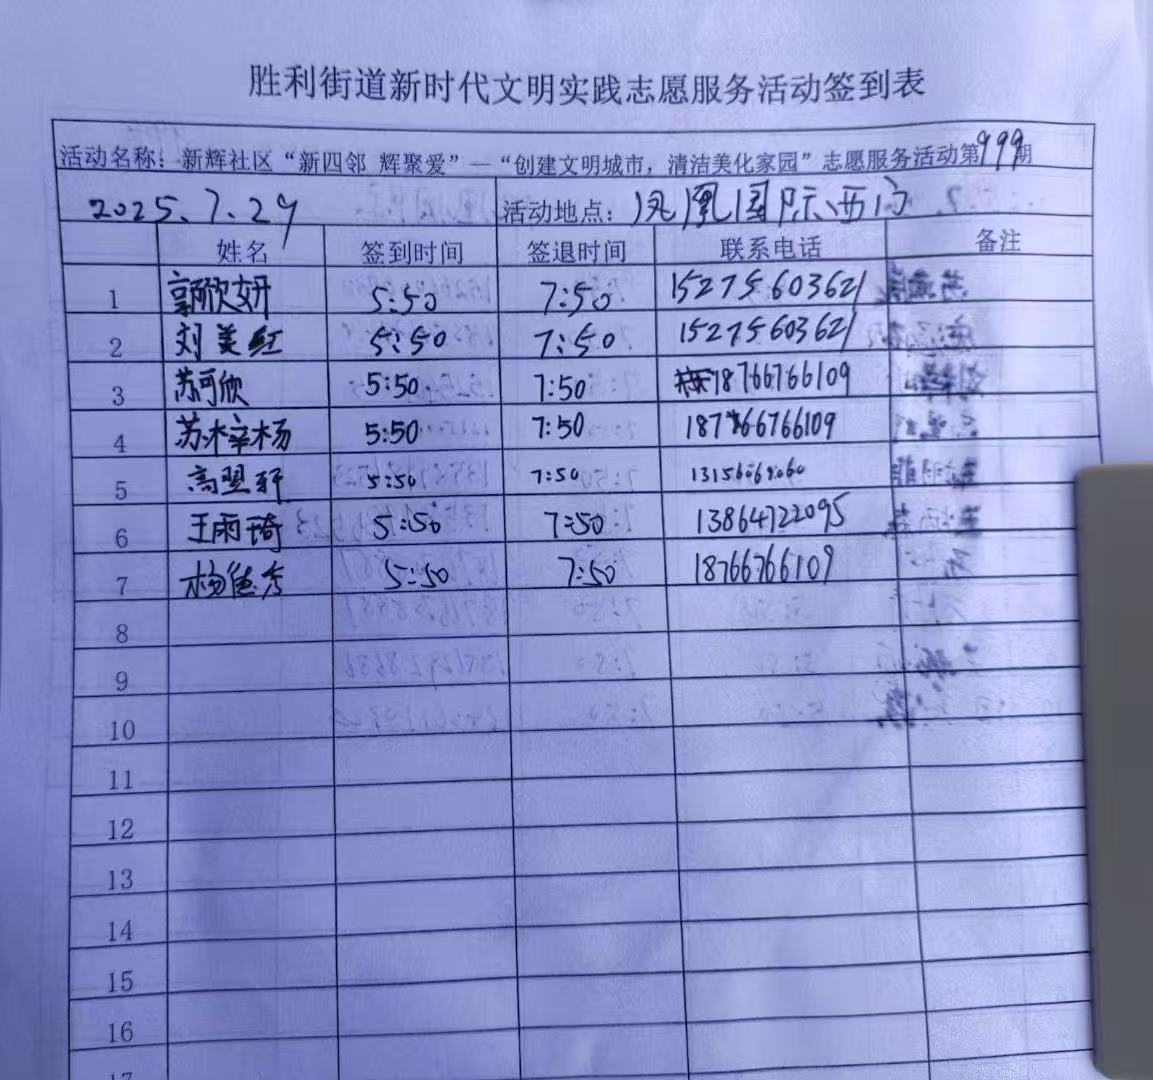 胜利街道新时代文明实践志愿服务活动签到表
活动名称：新辉社区“新四邻 辉聚爱”—“创建文明城市，清洁美化家园”志愿服务活动第999期
2025.7.29 活动地点：凤凰国际西门
姓名 签到时间 签退时间 联系电话 备注
1 郭欣妍 5:50 7:50 15275603621
2 刘美红 5:50 7:50 15275603621
3 苏可欣 5:50 7:50 18766766109
4 苏梓杨 5:50 7:50 18766766109
5 高翌轩 5:50 7:50
6 王雨琦 5:50 7:50 13864722095
7 杨德秀 5:50 7:50 18766766109
8
9
10
11
12
13
14
15
16
17